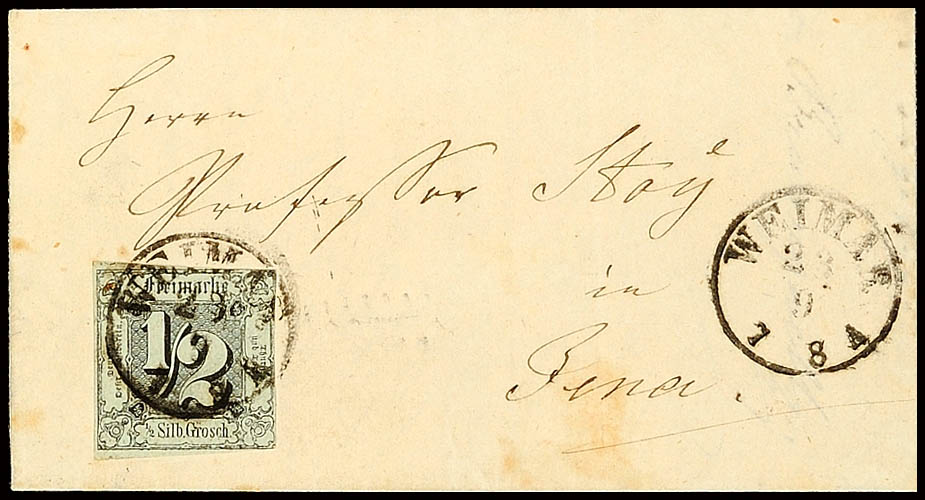 Herrn
Professor Stoÿ
in
Jena.
WEIMAR
23
9
7 8 A
WEIMAR
Freimarke
1/2
½ Silb. Grosch